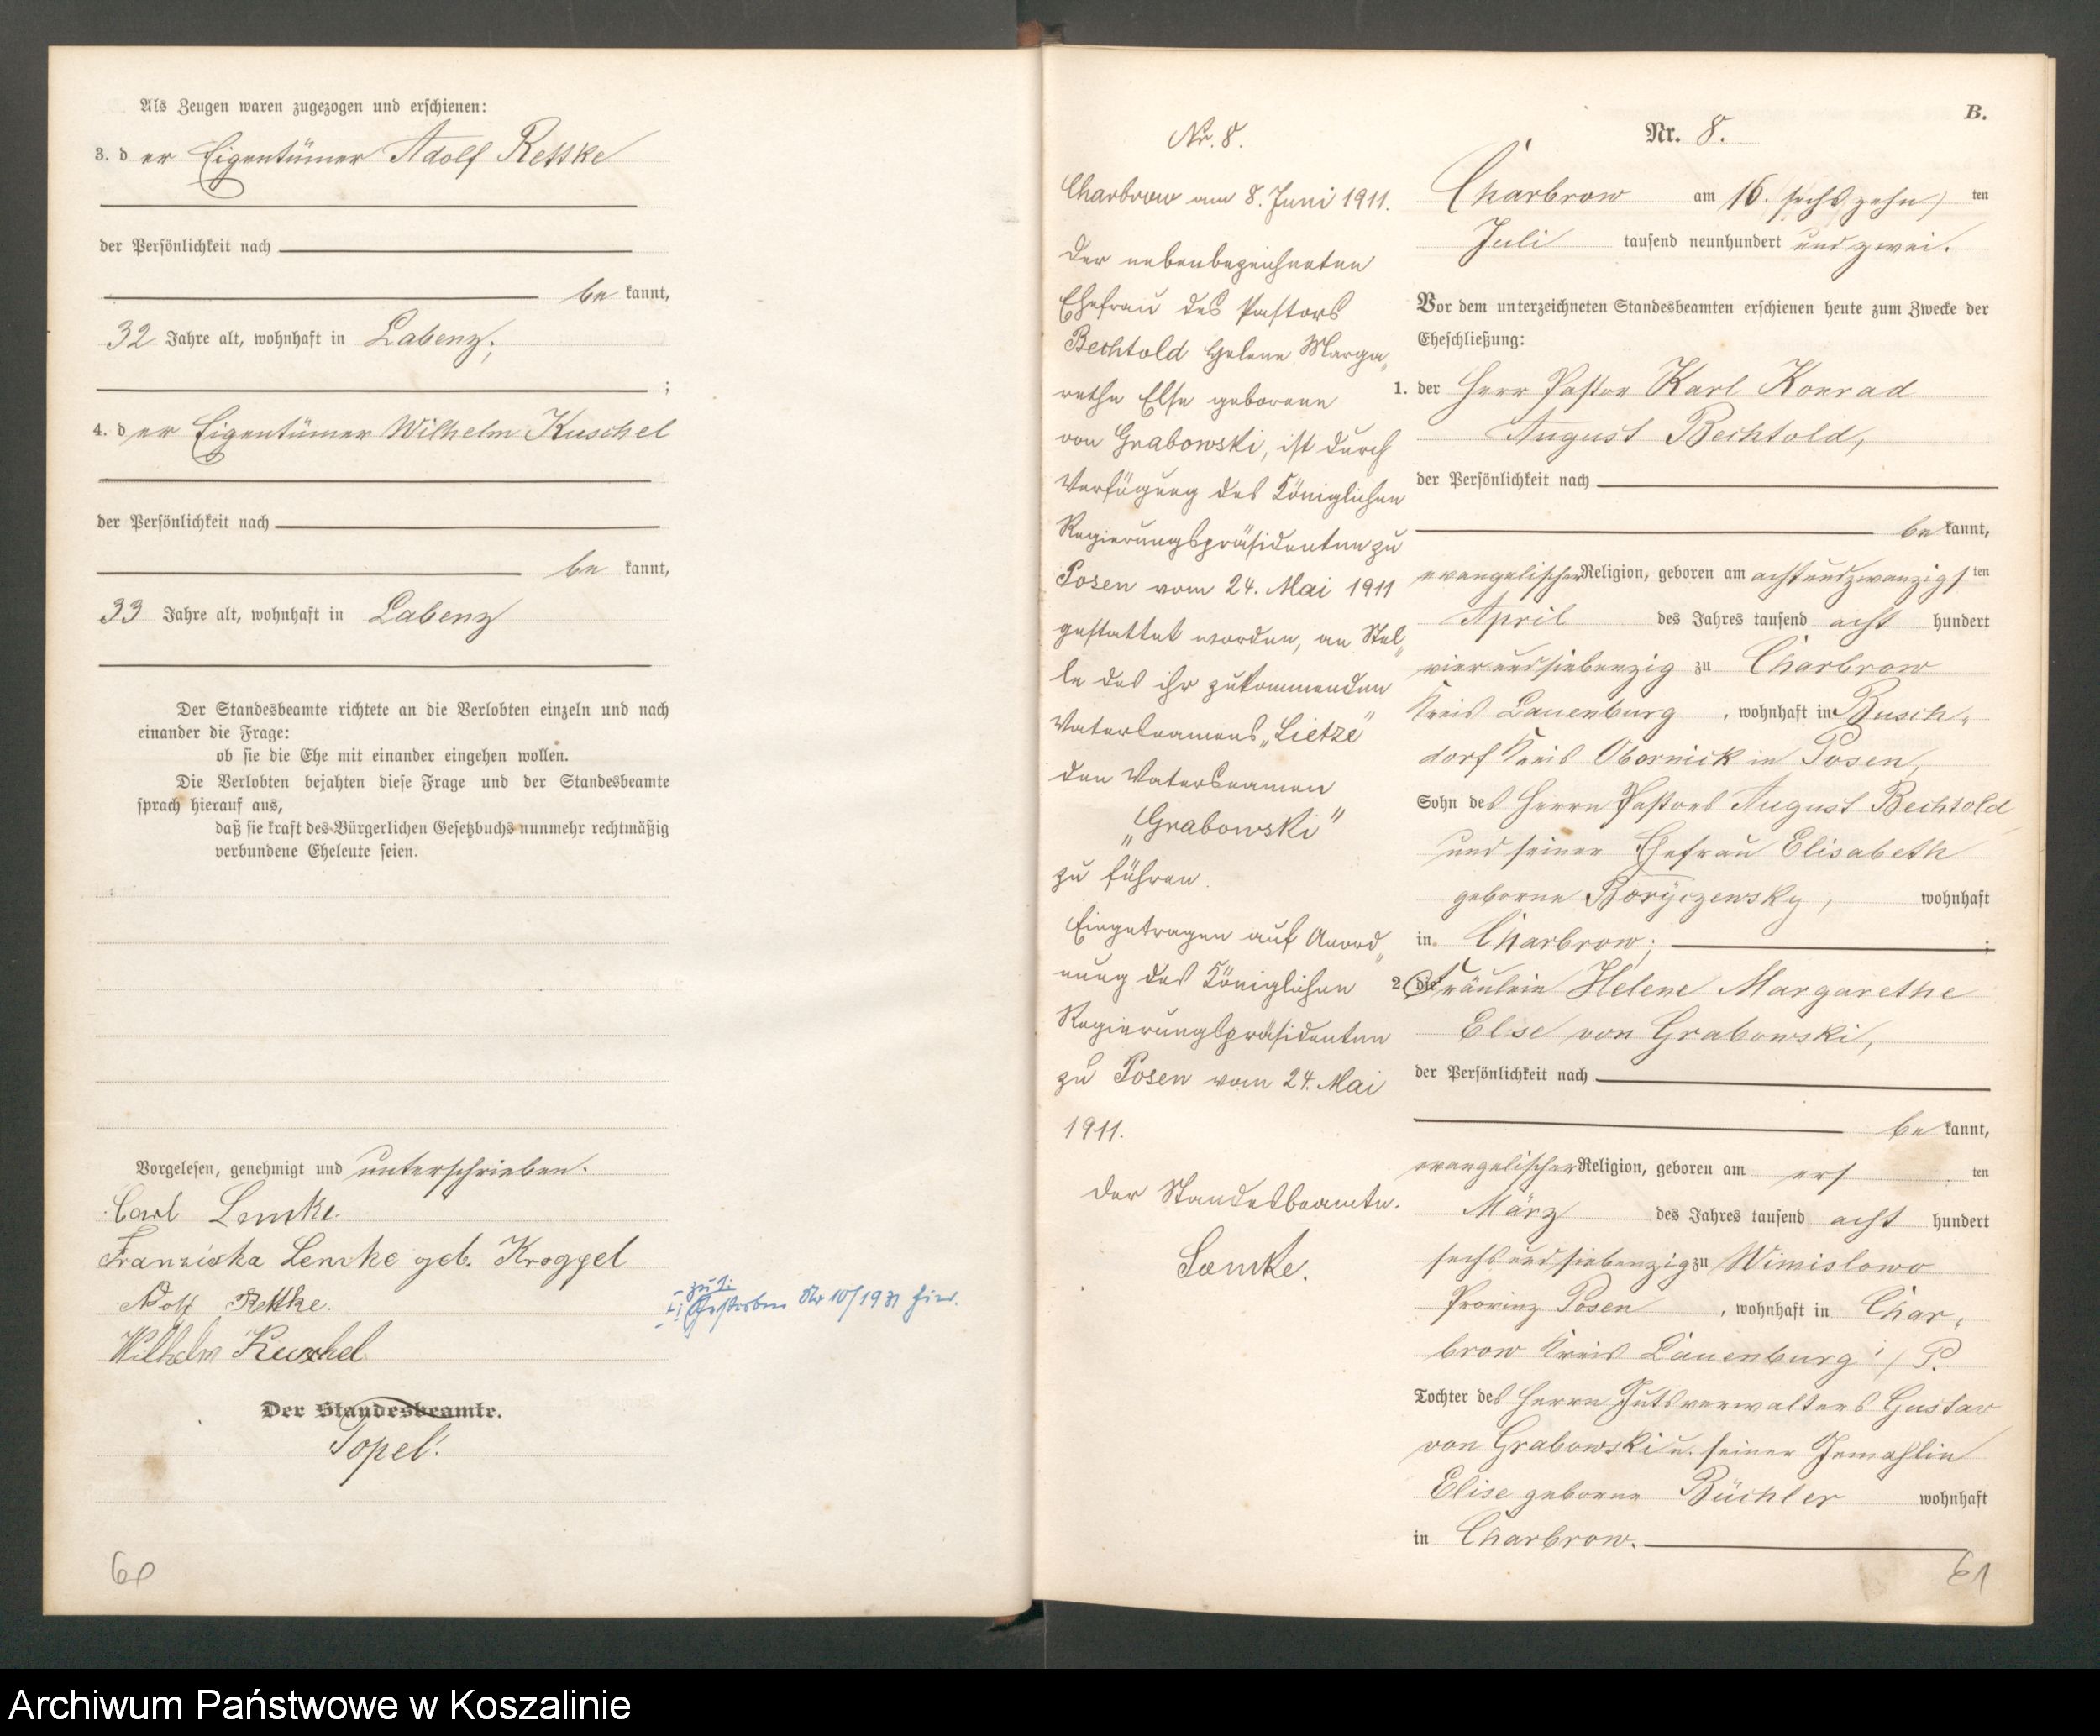 Als Zeugen waren zugezogen und erschienen:
3. der Eigentümer Adolf Rettke
der Persönlichkeit nach
bekannt,
32 Jahre alt, wohnhaft in Labenz;
;
4. der Eigentümer Wilhelm Kuschel
der Persönlichkeit nach
bekannt,
33 Jahre alt, wohnhaft in Labenz
Der Standesbeamte richtete an die Verlobten einzeln und nach
einander die Frage:
ob sie die Ehe mit einander eingehen wollen.
Die Verlobten bejahten diese Frage und der Standesbeamte
sprach hierauf aus,
daß sie kraft des Bürgerlichen Gesetzbuchs nunmehr rechtmäßig
verbundene Eheleute seien.
Vorgelesen, genehmigt und unterschrieben.
Carl Lemke.
Franziska Lemke geb. Kroggel
Adolf Rettke.
Wilhelm Kuschel
Der Standesbeamte.
Topel.
60
zu 1:
Gestorben Nr 10/1931 hier.
Nr. 8.
Charbrow am 8. Juni 1911.
Der nebenbezeichneten
Ehefrau des Pastors
Bechtold Helene Marga„
rethe Else geborene
von Grabowski, ist durch
Verfügung des Königlichen
Regierungspräsidenten zu
Posen vom 24. Mai 1911
gestattet worden, an Stel„
le des ihr zukommenden
Vatersnamens „Lietze"
den Vatersnamen
„Grabowski"
zu führen.
Eingetragen auf Anord„
nung des Königlichen
Regierungspräsidenten
zu Posen vom 24. Mai
1911.
Der Standesbeamte.
Lemke.
B.
Nr. 8.
Charbrow am 16. (sechszehn) ten
Juli tausend neunhundert und zwei.
Vor dem unterzeichneten Standesbeamten erschienen heute zum Zwecke der
Eheschließung:
1. der Herr Pastor Karl Konrad
August Bechtold,
der Persönlichkeit nach
bekannt,
evangelischer Religion, geboren am achtundzwanzigsten
April des Jahres tausend acht hundert
vierundsiebenzig zu Charbrow
Kreis Lauenburg, wohnhaft in Busch-
dorf Kreis Obornick in Posen,
Sohn des Herrn Pastors August Bechtold
und seiner Ehefrau Elisabeth
geborne Boryczewsky, wohnhaft
in Charbrow; ;
2. die Fräulein Helene Margarethe
Else von Grabowski,
der Persönlichkeit nach
bekannt,
evangelischer Religion, geboren am ersten
März des Jahres tausend acht hundert
sechsundsiebenzig zu Wimislowo
Provinz Posen, wohnhaft in Char-
brow Kreis Lauenburg i/P.
Tochter des Herrn Gutsverwalters Gustav
von Grabowski u. seiner Gemahlin
Elise geborne Büchler wohnhaft
in Charbrow.
61
Archiwum Państwowe w Koszalinie